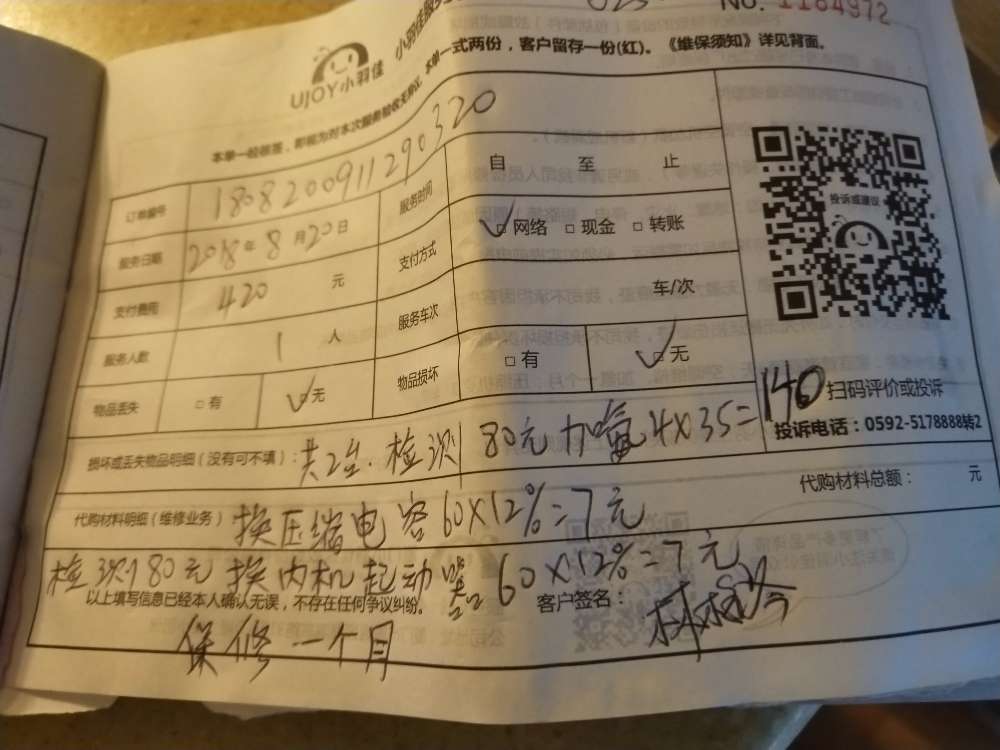 No. 1184972
UJOY小羽佳
本单一经核签，即视为对本次服务验收无异议。本单一式两份，客户留存一份(红)。《维保须知》详见背面。
订单编号 180820091129 0320 服务时间 自 至 止
服务日期 2018年8月20日 支付方式 □网络 □现金 □转账
支付费用 420 元 服务车次 车/次
服务人数 1 人 物品损坏 □有 □无
物品丢失 □有 □无
投诉或建议
扫码评价或投诉
投诉电话：0592-5178888转2
损坏或丢失物品明细（没有可不填）：共2台.检测80元加氟4X35=140
代购材料总额： 元
代购材料明细（维修业务）换压缩电容60X12%=7元
检测80元换内机起动器60X12%=7元
以上填写信息已经本人确认无误，不存在任何争议纠纷。 客户签名：
保修一个月